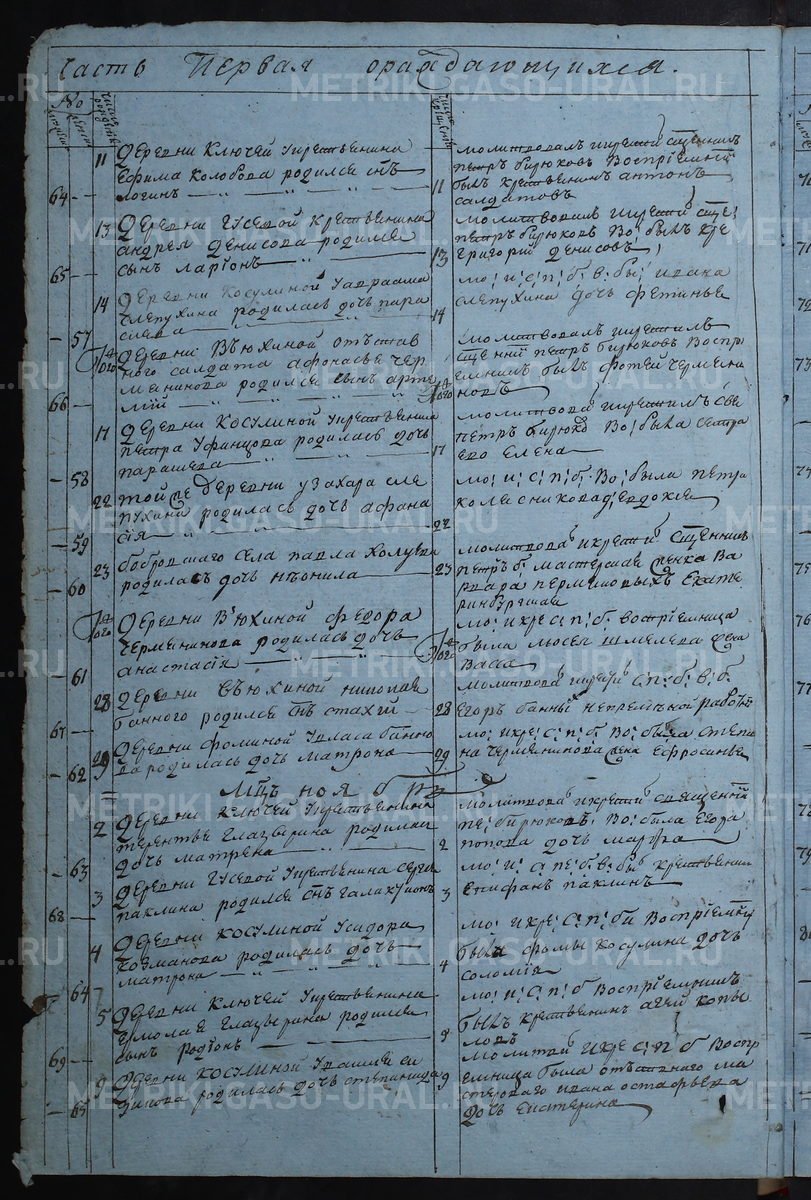 часть Первая ораждающихся.
№
11 Деревни Ключей у крестьянина
Ефима Колобова родился сынъ
логинъ
64
молитвовалъ и крестил священникъ
петръ бирюковъ Воспріемникъ
11 былъ крестьянинъ антонъ
солдатовъ
13 Деревни гусевой крестьянина
андрея денисова родился
сынъ ларіонъ
65
молитвовалъ и крестил свще:
петръ бирюковъ во: былъ кре
13 григорий денисовъ
14 Деревни Косулиной у авраама
слепухина родилась дочь пара
скева
57
мо: и: с: п: б: в: бы: ивана
слепухина дочь фетинья
14
Деревни Вьюхиной отъстав
ного солдата афонасья чер
меннкова родился сынъ арте
мій
66
молитвовалъ и крестилъ
священникъ петръ бирюковъ Воспр
емникъ былъ фотей чермени
новъ
17 Деревни Косулиной у крестьянина
петра уфинцова родилась дочь
парасева
58
молитвова: и крестилъ свя
петръ бирюко Во: была сестра
17 его Елена
22 той же деревни у захара сле
пухина родилась дочь афана
сія
59
мо: и: с: п: б: Во: была петра
колесникова евдокея
22
23 бобровского села павла холуева
родилась дочь неонила
60
молитвова: и крести: священникъ
23 петръ б: мастерская женка Ва
рвара пермикиныхъ Екате
ринбургская
Деревни Вьюхиной федора
черменинова родилась дочь
анастасія
61
мо: и кре: с: п: б: воспріемница
была мосея шмелева жена
Васса
28 Деревни Вьюхиной николая
банного родился сынъ стахій
67
молитвова и крети с: п: б: в: б:
28 Егоръ банный
29 Деревни фоминой у власа банно
ва родилась дочь матрона
62
мо: и кре: с: п: б: Во: была степа
29 на черменинова жена Ефросинья
мцъ ноябрь
2 Деревни ключей у крестьянина
терентья глазырина родилась
дочь матрена
63
молитвова и крести священникъ
пе: бирюковъ Во: была Егора
2 попова дочь марфа
3 Деревни гусевой у крестьянина сергея
паклина родился сынъ галактіонъ
68
мо: и: с: пе: б: в: бы крестьянинъ
3 Епифанъ паклинъ
4 Деревни косулиной у сидора
козманова родилась дочь
матрона
64
мо: и кре: с: п: б: Воспріемницей
была фомы косулина дочь
4 соломія
5 Деревни Ключей у крестьянина
Ермолая глазырина родился
сынъ родіонъ
69
мо: и: с: п: б Воспріемникъ
былъ крестьянинъ агей копы
ловъ
9 Деревни косулиной
родилась дочь степанида
65
молитво и кре с: п: б: Воспр
емница была отъставного ма
9 стероваго ивана остафьева
дочь Екатерина
METRIKI.GASO-URAL.RU